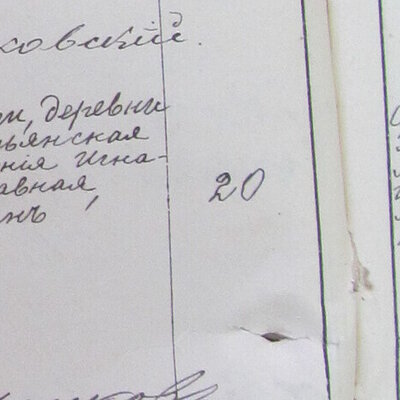 ковский.
, деревни
ьянская
нія Игна-
авная 20
нъ,